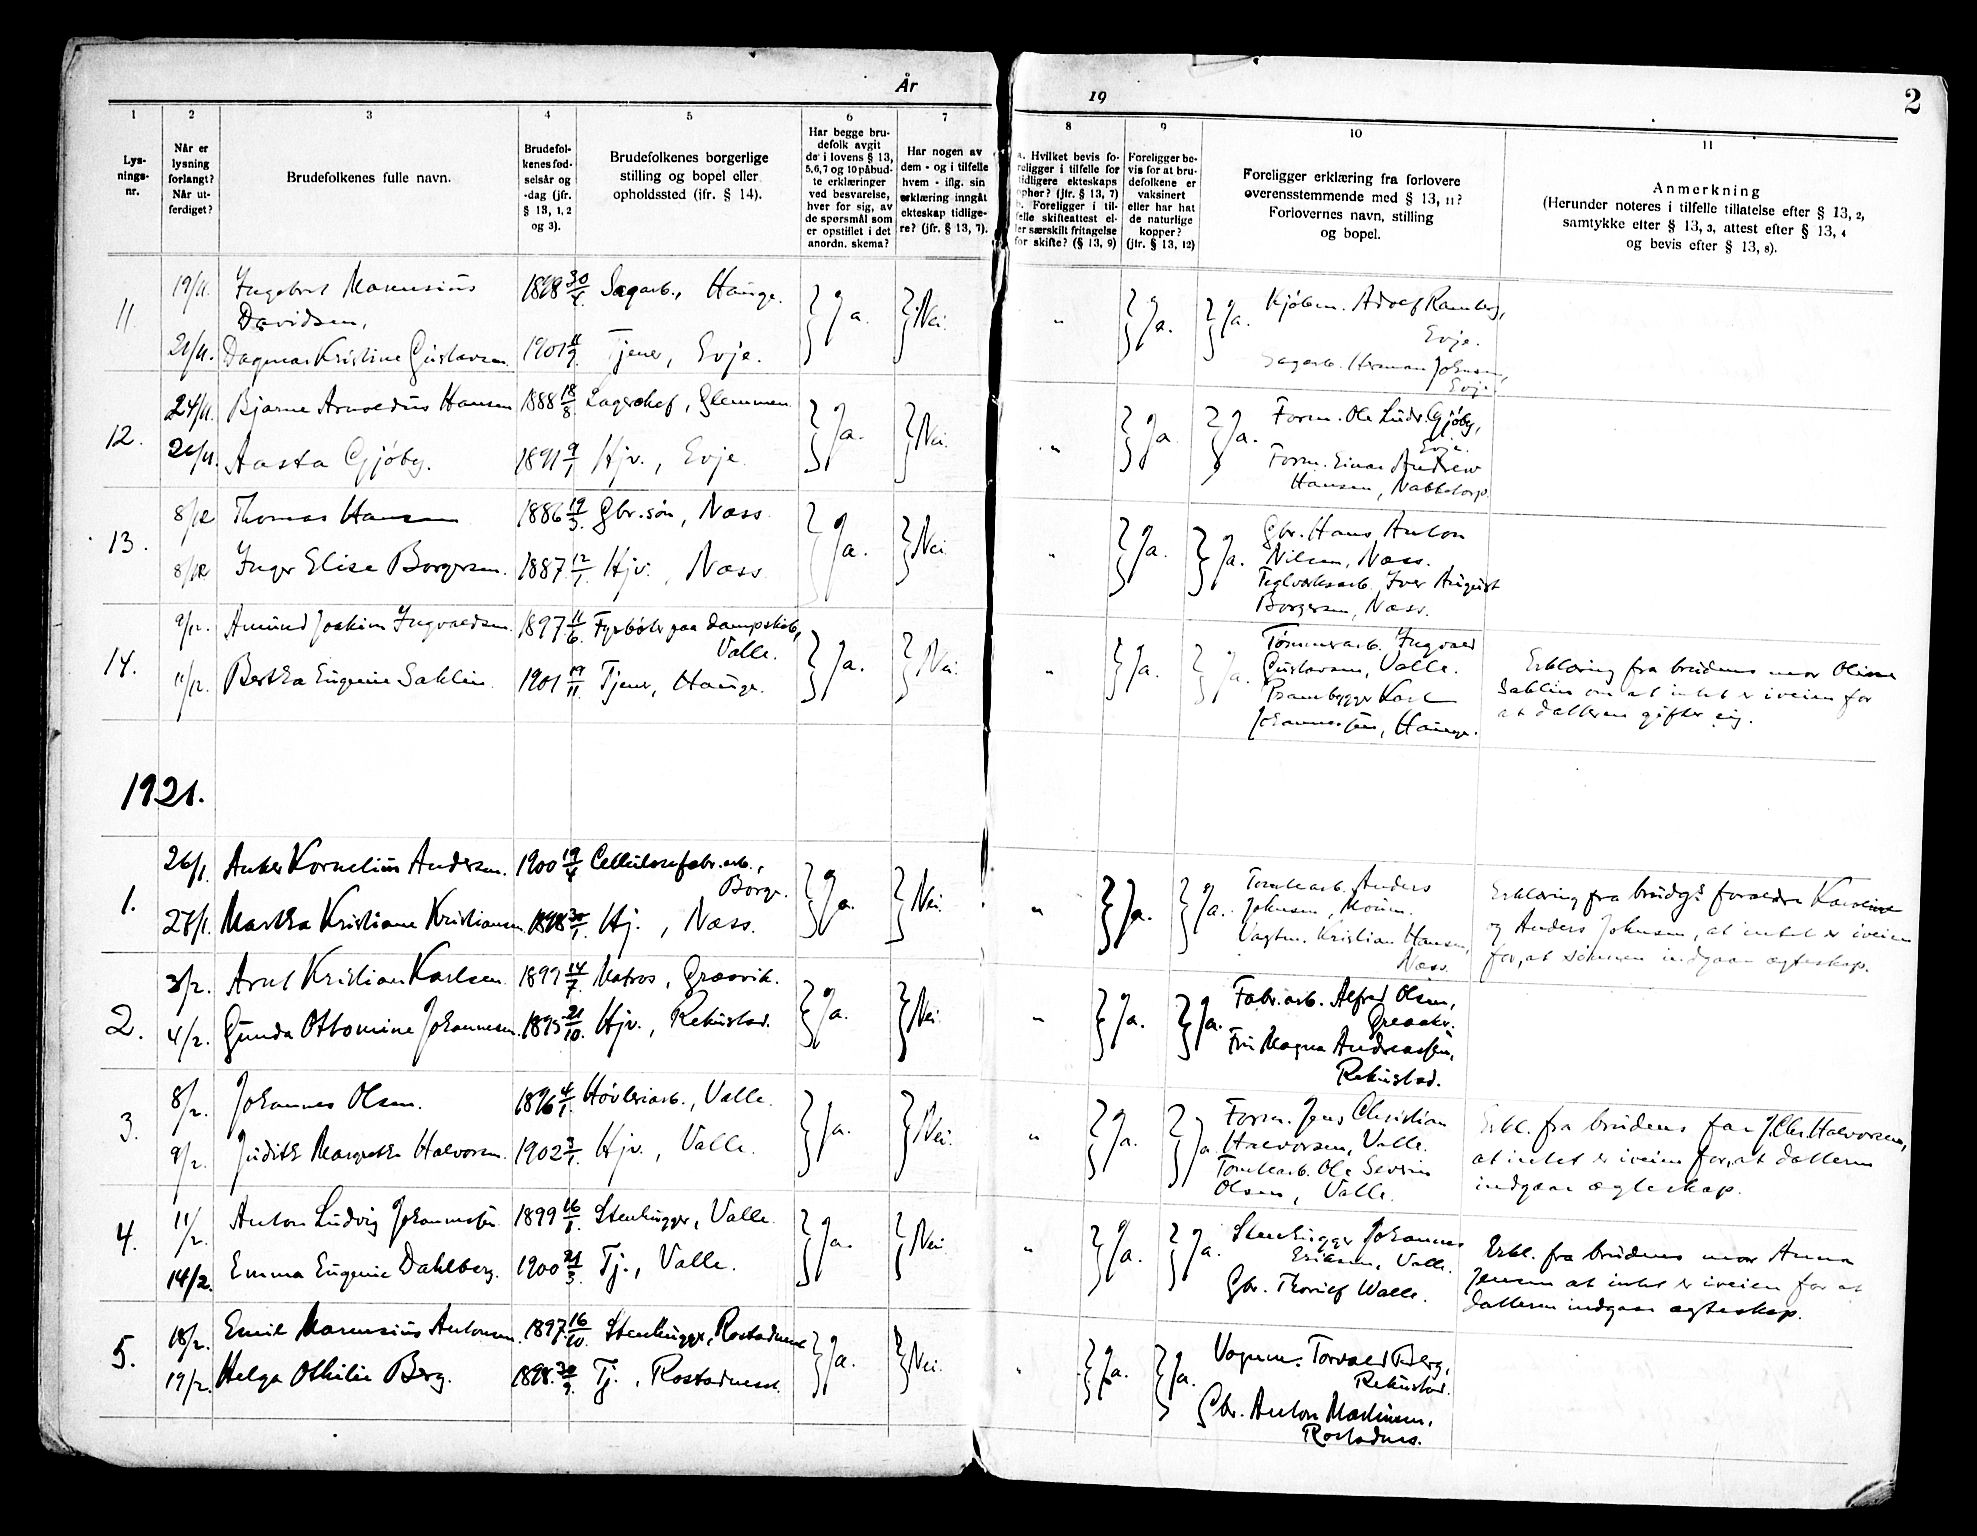 År
19
2
1
2
3
4
5
6
7
8
9
10
11
Lys-
nings-
nr.
Når er
lysning
forlangt?
Når ut-
ferdiget?
Brudefolkenes fulle navn.
Brudefol-
kenes fød-
selsår og
-dag (jfr.
§ 13, 1, 2
og 3).
Brudefolkenes borgerlige
stilling og bopel eller
opholdssted (jfr. § 14).
Har begge bru-
defolk avgit
de i lovens § 13,
5,6,7 og 10 påbud-
te erklæringer
ved besvarelse,
hver for sig, av
de spørsmål som
er opstillet i det
anordn. skema?
Har nogen av
dem - og i tilfelle
hvem - iflg. sin
erklæring inngått
ekteskap tidlige-
re? (jfr. § 13, 7).
a. Hvilket bevis fo-
religger i tilfelle for
tidligere ekteskaps
ophør? (jfr. § 13, 7)
b. Foreligger i til-
felle skifteattest el-
ler særskilt fritagelse
for skifte? (§ 13, 9)
Foreligger be-
vis for at bru-
defolkene er
vaksinert
eller har hat
de naturlige
kopper?
(jfr. § 13, 12)
Foreligger erklæring fra forlovere
overensstemmende med § 13, 11?
Forlovernes navn, stilling
og bopel.
Anmerkning
(Herunder noteres i tilfelle tillatelse efter § 13, 2,
samtykke efter § 13, 3, attest efter § 13, 4
og bevis efter § 13, 8).
11.
19/11. Ingebret Marensius 1898 30/4 Sagarb., Hauge. Ja. Nei. " Ja. Ja. Kjøbm. Adolf Ramberg,
Davidsen,
Evje.
21/11. Dagmar Kristine Gustavsen 1901 11/9 Tjener, Evje.
Sagarb. Herman Johnsen,
Evje.
12.
24/11. Bjarne Arnoldus Hansen 1888 18/8 Lagerchef, Glemmen. Ja. Nei. " Ja. Ja. Form. Ole Ludv. Gjøby,
Evje.
26/11. Aasta Gjøby. 1891 9/1 Hjv., Evje.
Form. Einar Andrew
Hansen, Nabbetorp.
13.
8/12 Thomas Hansen 1886 19/3 Gbr.søn, Næss. Ja. Nei. " Ja. Ja. Gbr. Hans Anton
Nilsen, Næss.
8/12 Inger Elise Borgersen. 1887 12/1 Hjv., Næss
Teglverksarb. Iver August
Borgersen, Næss.
14.
9/12. Amund Joakim Ingvaldsen. 1897 11/6 Fyrbøter paa dampskib,
Valle. Ja. Nei. " Ja. Ja. Tømmerarb. Ingvald
Gustavsen, Valle.
11/12. Bertha Eugenie Sahlin. 1901 19/11 Tjener, Hauge.
Prambygger Karl
Johannessen, Hauge.
Erklæring fra brudens mor Oline
Sahlin om at intet er iveien for
at datteren gifter sig.
1921.
1.
26/1. Anker Kornelius Andersen. 1900 19/4 Cellulosefabr.arb.,
Borge. Ja. Nei. " Ja. Ja. Tomtearb. Anders
Johnsen, Moum.
27/1. Martha Kristiane Kristiansen. 1898 30/1 Hj., Næss.
Vagtm. Kristian Hansen,
Næss.
Erklæring fra brudgs forældre Karoline
og Anders Johnsen, at intet er iveien
for, at sønnen indgaar ægteskap.
2.
3/2. Arnt Kristian Karlsen. 1899 14/7 Matros, Græsvik. Ja. Nei. " Ja. Ja. Fabr.arb. Alfred Olsen,
Greaaker.
4/2. Gunda Ottomine Johannesen. 1895 21/10. Hjv., Rekustad.
Fru Magna Andreassen,
Rekustad.
3.
8/2. Johannes Olsen. 1896 4/1. Høvleriarb., Valle. Ja. Nei. " Ja. Ja. Form. Jens Christian
Halvorsen, Valle.
9/2. Judith Margrethe Halvorsen. 1902 3/1. Hjv., Valle.
Tomtearb. Ole Severin
Olsen, Valle.
Erkl. fra brudens far J. Chr. Halvorsen,
at intet er iveien for, at datteren
indgaar ægteskap.
4.
11/2. Anton Ludvig Johannessen 1899 16/1. Stenhugger, Valle. Ja. Nei. " Ja. Ja. Stenhugger Johannes
Eriksen, Valle.
14/2. Emma Eugenie Dahlberg. 1900 21/3. Tj., Valle.
Gbr. Thorleif Walle.
Erkl. fra brudens mor Anna
Jensen at intet er iveien for at
datteren indgaar ægteskap.
5.
18/2. Emil Marensius Antonsen. 1897. 16/10. Stenhugger, Rostadnesset Ja. Nei. " Ja. Ja. Vognm. Torvald Berg,
Rekustad.
19/2. Helga Othilie Berg. 1898. 30/9. Tj., Rostadnesset.
Gbr. Anton Martinsen,
Rostadnes.